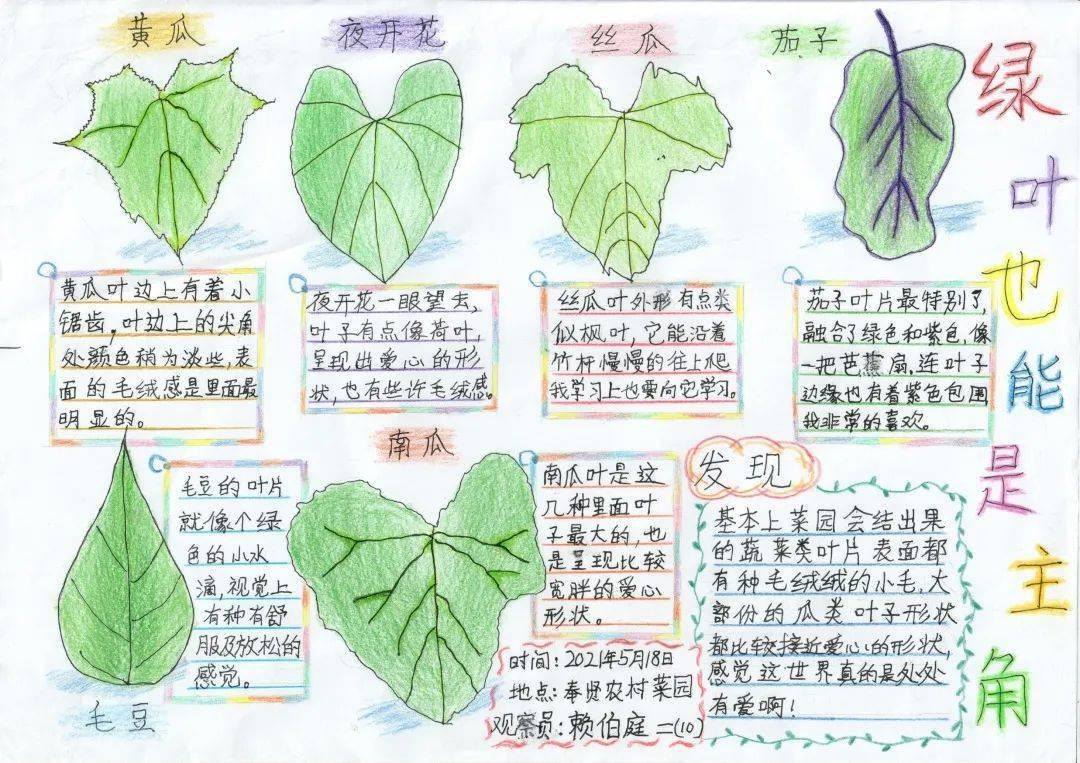 绿叶也能是主角
黄瓜
夜开花
丝瓜
茄子
黄瓜叶边上有着小
锯齿,叶边上的尖角
处颜色稍为淡些,表
面的毛绒感是里面最
明显的。
夜开花一眼望去,
叶子有点像荷叶,
呈现出爱心的形
状,也有些许毛绒感。
丝瓜叶外形有点类
似枫叶,它能沿着
竹杆慢慢的往上爬
我学习上也要向它学习。
茄子叶片最特别了,
融合了绿色和紫色,像
一把芭蕉扇,连叶子
边缘也有着紫色包围
我非常的喜欢。
毛豆
毛豆的叶片
就像个绿
色的小水
滴,视觉上
有种有舒
服及放松的
感觉。
南瓜
南瓜叶是这
几种里面叶
子最大的,也
是呈现比较
宽胖的爱心
形状。
发现
基本上菜园会结出果
的蔬菜类叶片表面都
有种毛绒绒的小毛,大
部份的瓜类叶子形状
都比较接近爱心的形状,
感觉这世界真的是处处
有爱啊!
时间:2021年5月18日
地点:奉贤农村菜园
观察员:赖伯庭二(10)